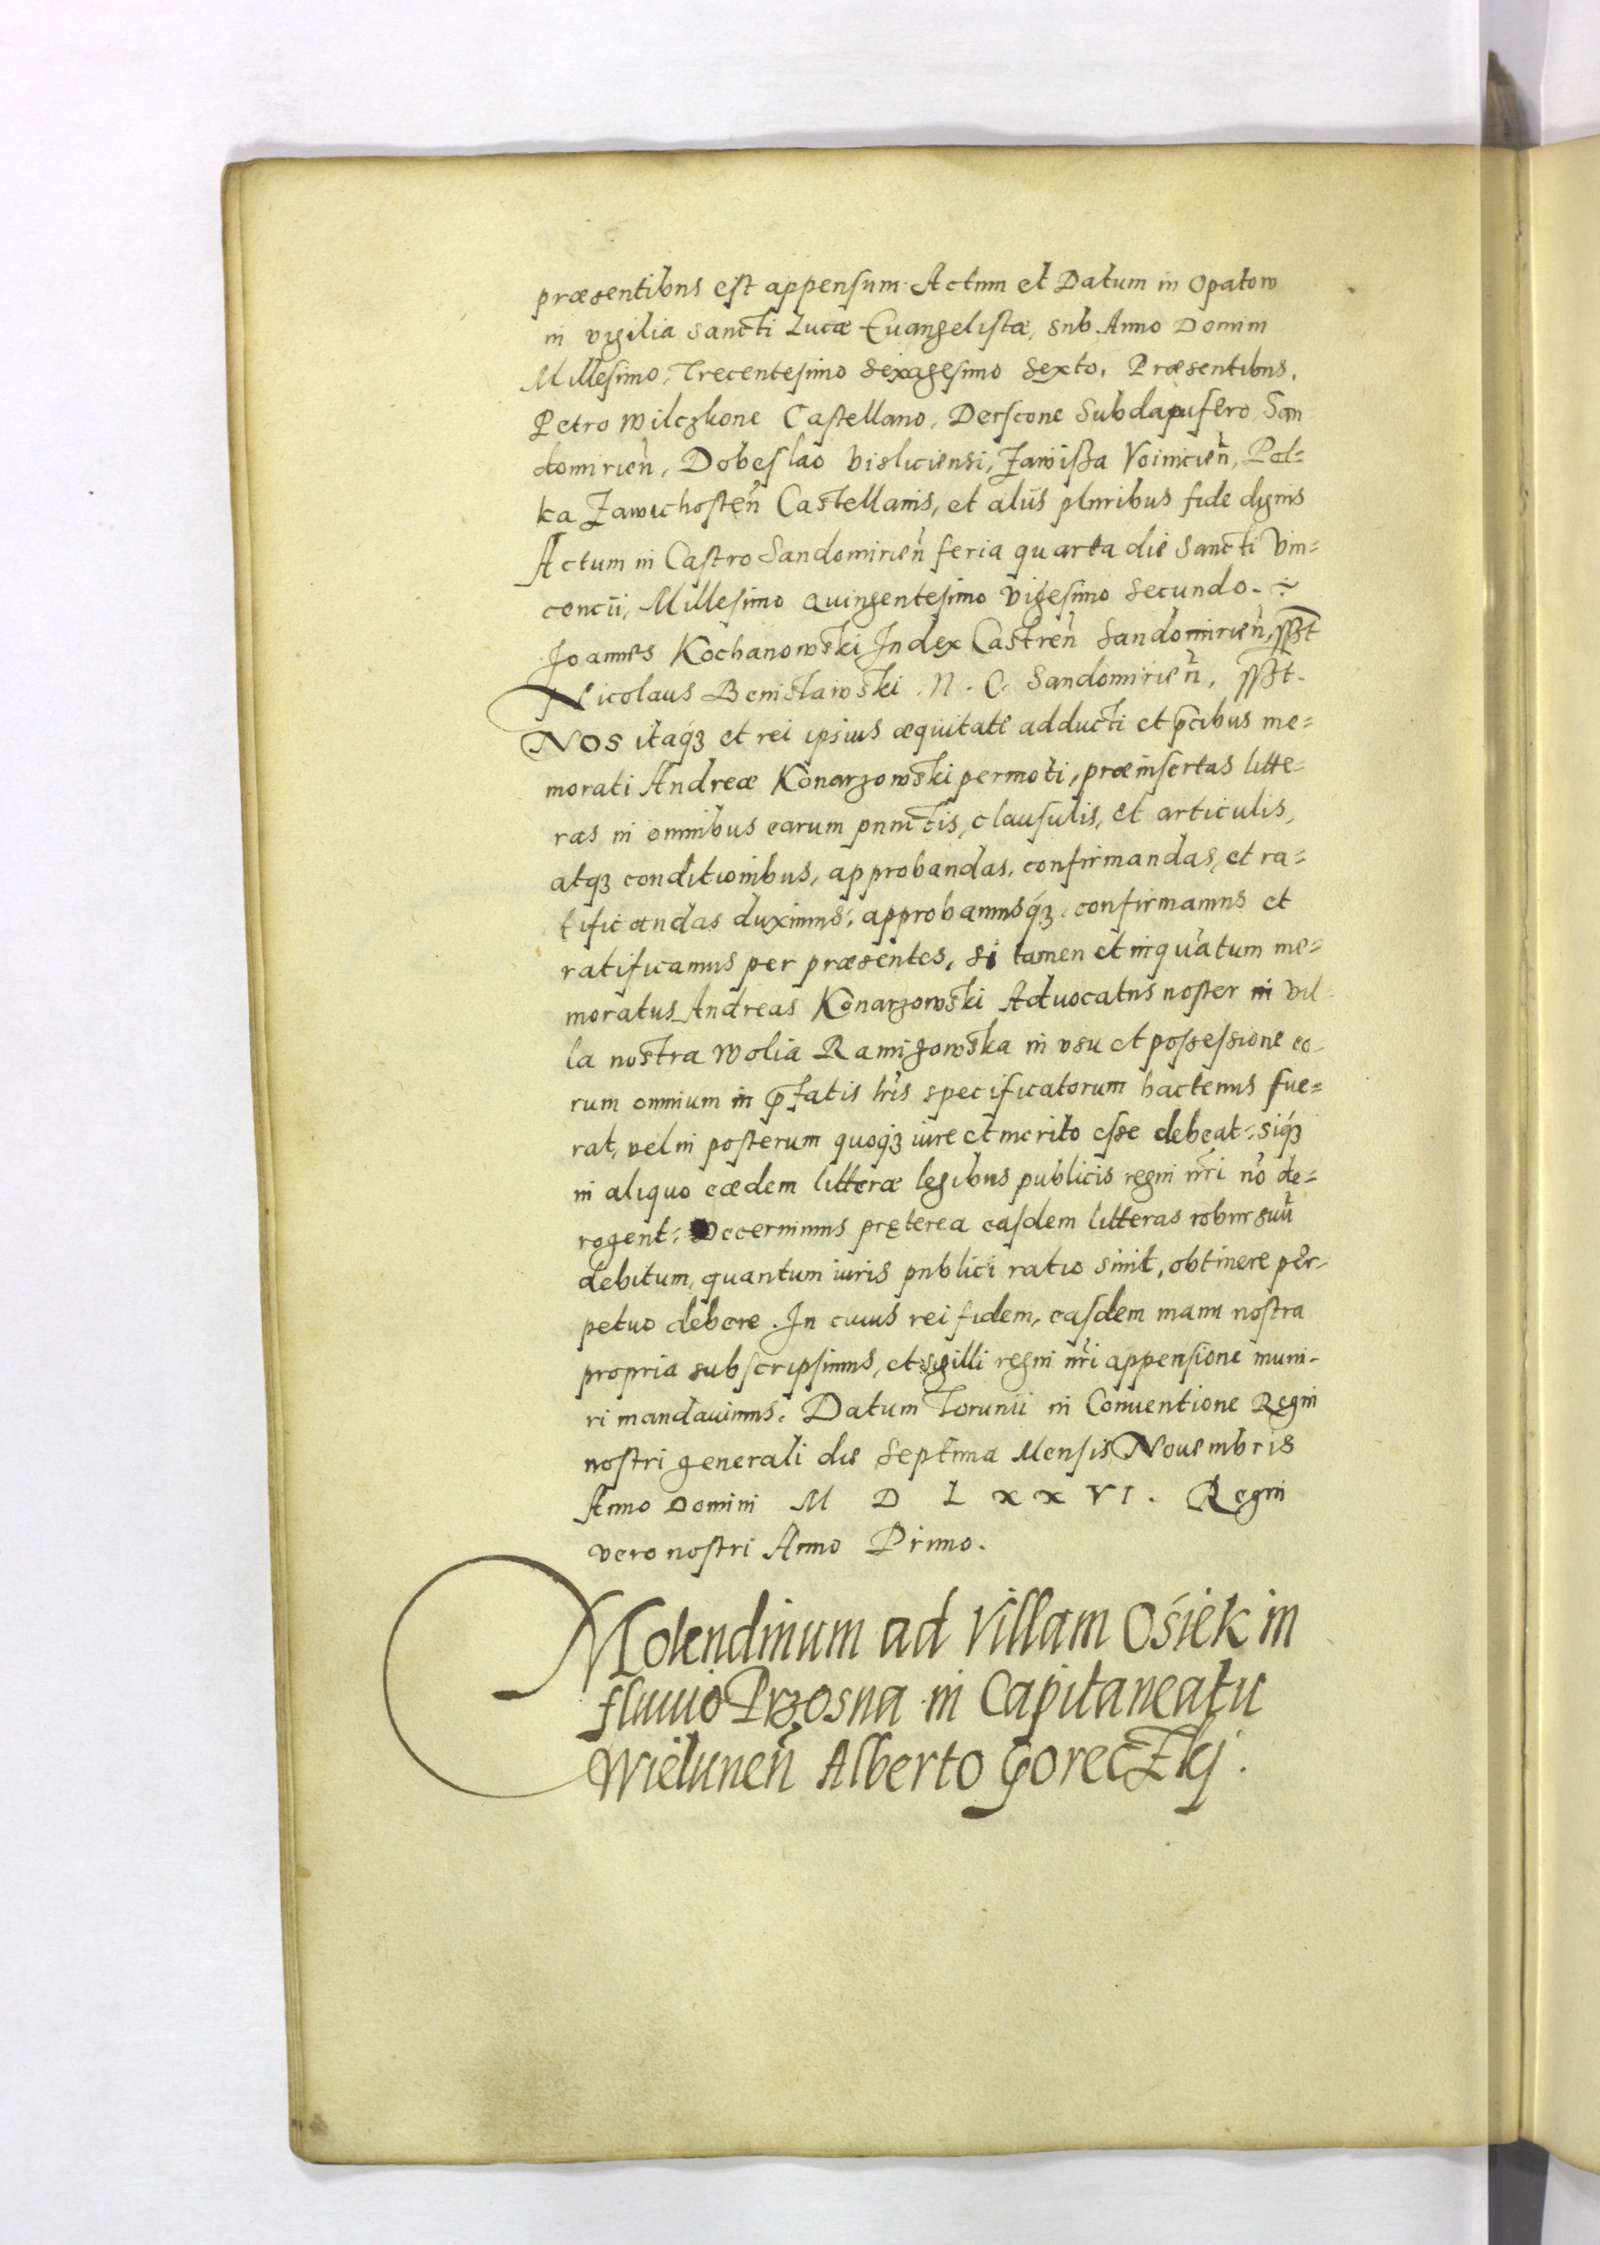 præsentibus est appensum. Actum et Datum in Opatow
in vigilia Sancti Lucæ Euangelistæ, sub Anno Domini
Millesimo, Trecentesimo Sexagesimo Sexto, Præsentibus,
Petro Wilczkone Castellano, Derscone Subdapifero San
domirień, Dobeslao Visliciensi, Zawissa Voinicień, Pel=
ka Zawichosteń Castellanis, et aliis pluribus fide dignis
Actum in Castro Sandomirień feria quarta die Sancti Vin=
cencii, Millesimo Quingentesimo Vigesimo Secundo.
Joannes Kochanowski Judex Castreń Sandomirień, sszt
Nicolaus Benislawski . N . C. Sandomirień, sszt.
NOS itaqȝ et rei ipsius æquitate adducti et p̄cibus me=
morati Andreæ Konarzowski permoti, præinsertas litte=
ras in omnibus earum punctis, clausulis, et articulis,
atqȝ conditionibus, approbandas, confirmandas, et ra=
tificandas duximus: approbamusqȝ, confirmamus et
ratificamus per præsentes, si tamen et inquātum me=
moratus Andreas Konarzowski Aduocatus noster in vil
la nostra Wolia Ramizowska in vsu et possessione eo-
rum omnium in p̄fatis lr̄is specificatorum hactenus fue=
rat, vel in posterum quoqȝ iure et merito esse debeat: siqȝ
in aliquo eædem litteræ legibus publicis regni nr̄i nō de=
rogent: Decernimus pręterea easdem litteras robur suū
debitum, quantum iuris publici ratio sinit, obtinere per-
petuo debere. In cuius rei fidem, easdem manu nostra
propria subscripsimus, et sigilli regni nr̄i appensione muni-
ri mandauimus. Datum Torunii in Conuentione Regni
nostri generali die Septima Mensis Nouembris
Anno Domini M D L X X V I . Regni
vero nostri Anno Primo.
Molendinum ad Villam Osiek in
fluuio Przosna in Capitaneatu
Wieluneń Alberto Goreczkj.